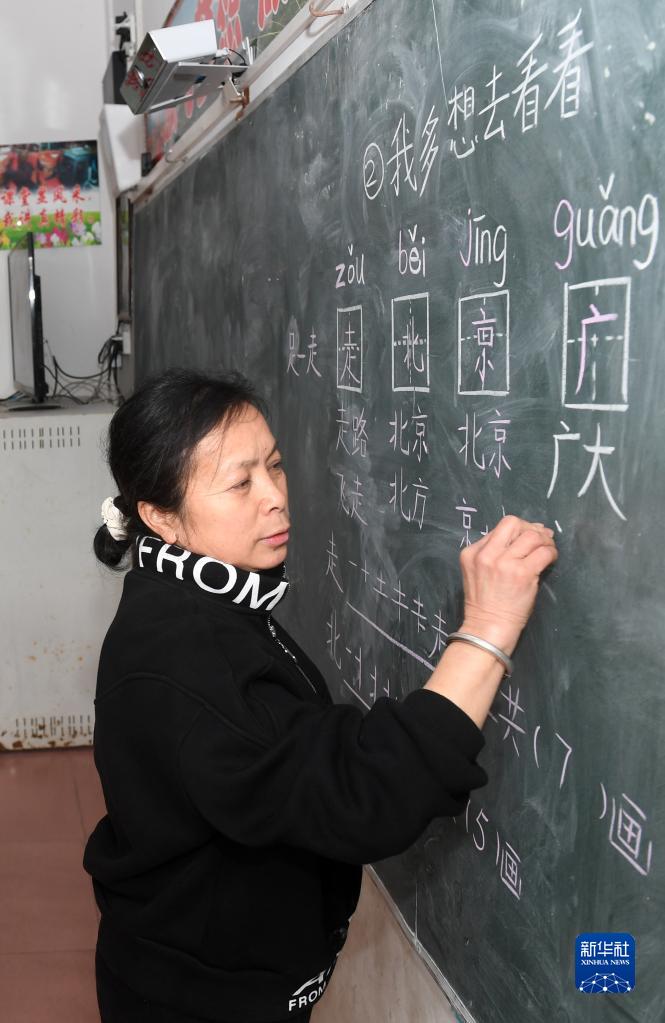 ②我多想去看看
zǒu běi jīng guǎng
足-走 走 北 京 广
走路 北京 北京 广大
飞走 北方 京
走 一 十 土 キ 卡 走
共(7)画
北
(5)画
课堂显风采
我讲真精彩
FROM
FROM
新华社
XINHUA NEWS